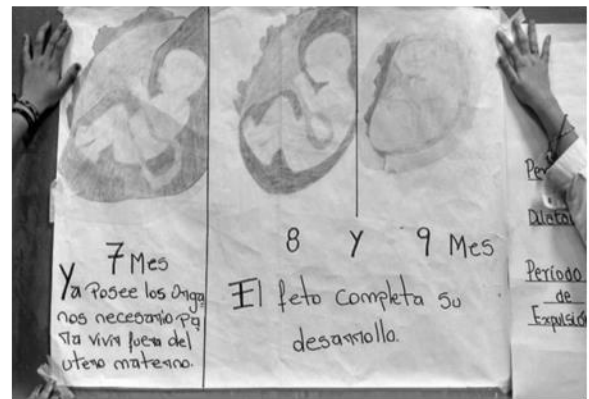 7 Mes
Ya Posee los Orga
nos necesario pa
ra vivir fuera del
utero materno.
8 Y 9 Mes
El feto completa su
desarrollo.
Período
de
Expulsió